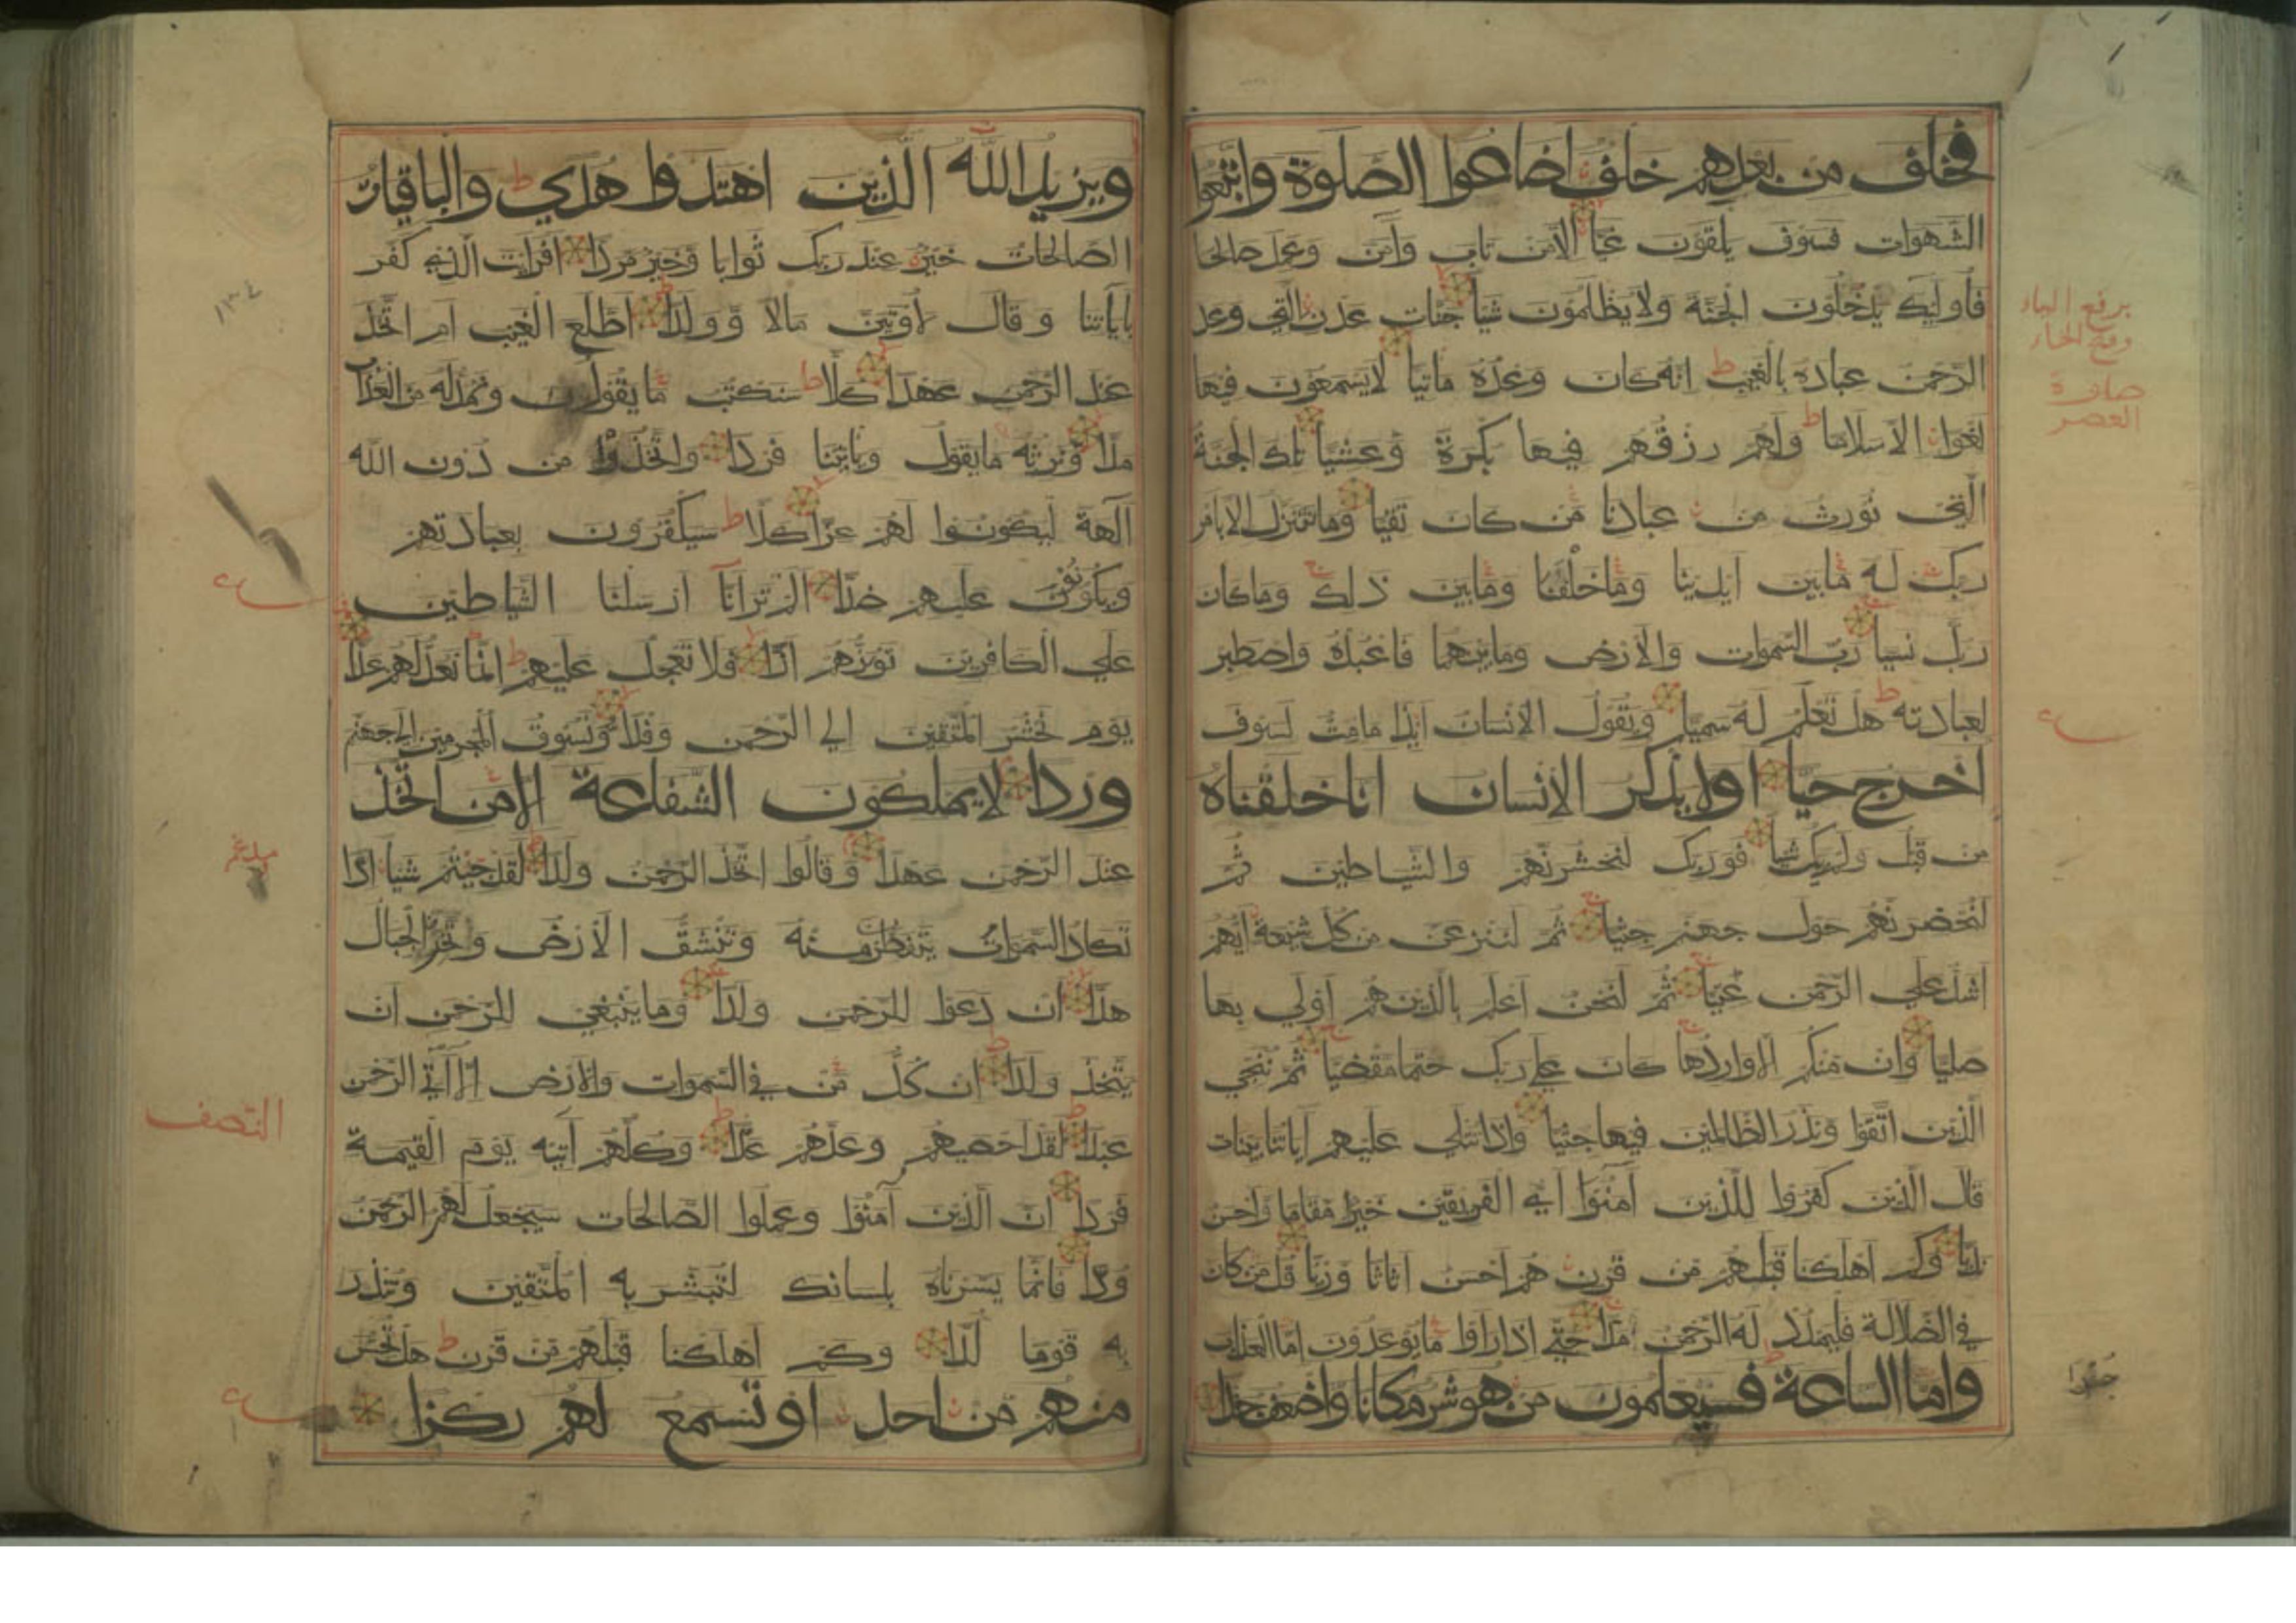 فخلف من بعدهم خلف اضاعوا الصلوة واتبعوا
الشهوات فسوف يلقون غيا الا من تاب وآمن وعمل صالحا
فاوليك يدخلون الجنة ولا يظلمون شيا جنات عدن التي وعد
الرحمن عباده بالغيب انه كان وعده ماتيا لا يسمعون فيها
لغوا الا سلاما ولهم رزقهم فيها بكرة وعشيا تلك الجنة
التي نورث من عبادنا من كان تقيا وما نتنزل الا بامر
ربك له ما بين ايدينا وما خلفنا وما بين ذلك وما كان
ربك نسيا رب السموات والارض وما بينهما فاعبده واصطبر
لعبادته هل تعلم له سميا ويقول الانسان ايذا ما مت لسوف
اخرج حيا اولا يذكر الانسان انا خلقناه
من قبل ولم يك شيا فوربك لنحشرنهم والشياطين ثم
لنحضرنهم حول جهنم جثيا ثم لننزعن من كل شيعة ايهم
اشد علي الرحمن عتيا ثم لنحن اعلم بالذين هم اولي بها
صليا وان منكم الا واردها كان علي ربك حتما مقضيا ثم ننجي
الذين اتقوا ونذر الظالمين فيها جثيا واذا تتلي عليهم آياتنا بينات
قال الذين كفروا للذين آمنوا اي الفريقين خير مقاما واحسن
نديا وكم اهلكنا قبلهم من قرن هم احسن اثاثا وريا قل من كان
في الضلالة فليمدد له الرحمن مدا حتي اذا راوا ما يوعدون اما العذاب
واما الساعة فسيعلمون من هو شر مكانا واضعف جندا
برفع الياء
وفتح الخاء
صلوة
العصر
ع
جندا
ويزيد الله الذين اهتدوا هدي والباقيات
الصالحات خير عند ربك ثوابا وخير مردا افرايت الذي كفر
باياتنا وقال لاوتين مالا وولدا اطلع الغيب ام اتخذ
عند الرحمن عهدا كلا سنكتب ما يقول ونمد له من العذاب
مدا ونرثه ما يقول وياتينا فردا واتخذوا من دون الله
آلهة ليكونوا لهم عزا كلا سيكفرون بعبادتهم
ويكونون عليهم ضدا الم تر انا ارسلنا الشياطين
علي الكافرين توزهم ازا فلا تعجل عليهم انما نعد لهم عدا
يوم نحشر المتقين الي الرحمن وفدا ونسوق المجرمين الي جهنم
وردا لا يملكون الشفاعة الا من اتخذ
عند الرحمن عهدا وقالوا اتخذ الرحمن ولدا لقد جيتم شيا ادا
تكاد السموات يتفطرن منه وتنشق الارض وتخر الجبال
هدا ان دعوا للرحمن ولدا وما ينبغي للرحمن ان
يتخذ ولدا ان كل من في السموات والارض الا آتي الرحمن
عبدا لقد احصيهم وعدهم عدا وكلهم آتيه يوم القيمة
فردا ان الذين آمنوا وعملوا الصالحات سيجعل لهم الرحمن
ودا فانما يسرناه بلسانك لتبشر به المتقين وتنذر
به قوما لدا وكم اهلكنا قبلهم من قرن هل تحس
منهم من احد او تسمع لهم ركزا
١٣٤
ع
النصف
ع